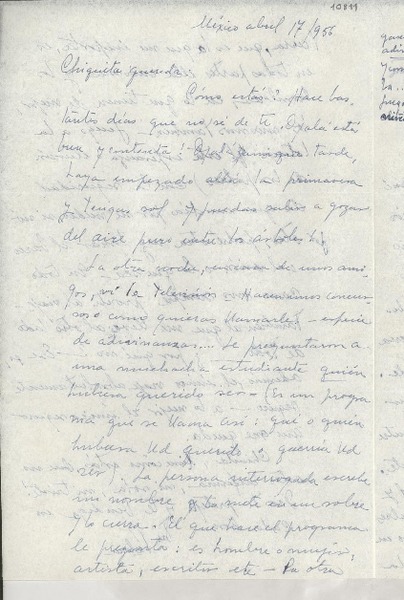 10811
México abril 17/956
Chiquita querida:
Cómo estás? Hace bas-
tantes días que no sé de ti. Ojalá estés
bien y contenta! Ojalá aunque tarde,
haya empezado allá la primavera
y tengas sol y puedas salir a gozar
del aire puro entre los árboles!
La otra noche, en casa de unos ami-
gos, vi la Televisión. Hacen unos concur-
sos o como quieras llamarles - especie
de adivinanzas... Le preguntaron a
una muchacha estudiante quién
hubiera querido ser - (Es un progra
ma que se llama así: qué o quién
hubiera Ud. querido o querría Ud
ser). La persona interrogada escribe
un nombre lo mete en un sobre
y lo cierra. El que hace el programa
le pregunta: es hombre o mujer,
artista, escritor etc - La otra